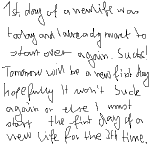 1st day of a new life was
today and I already want to
start over again. Sucks!
Tomorrow will be a new first day
hopefully it won't suck
again or else I must
start the first day of a
new life for the 3rd time.